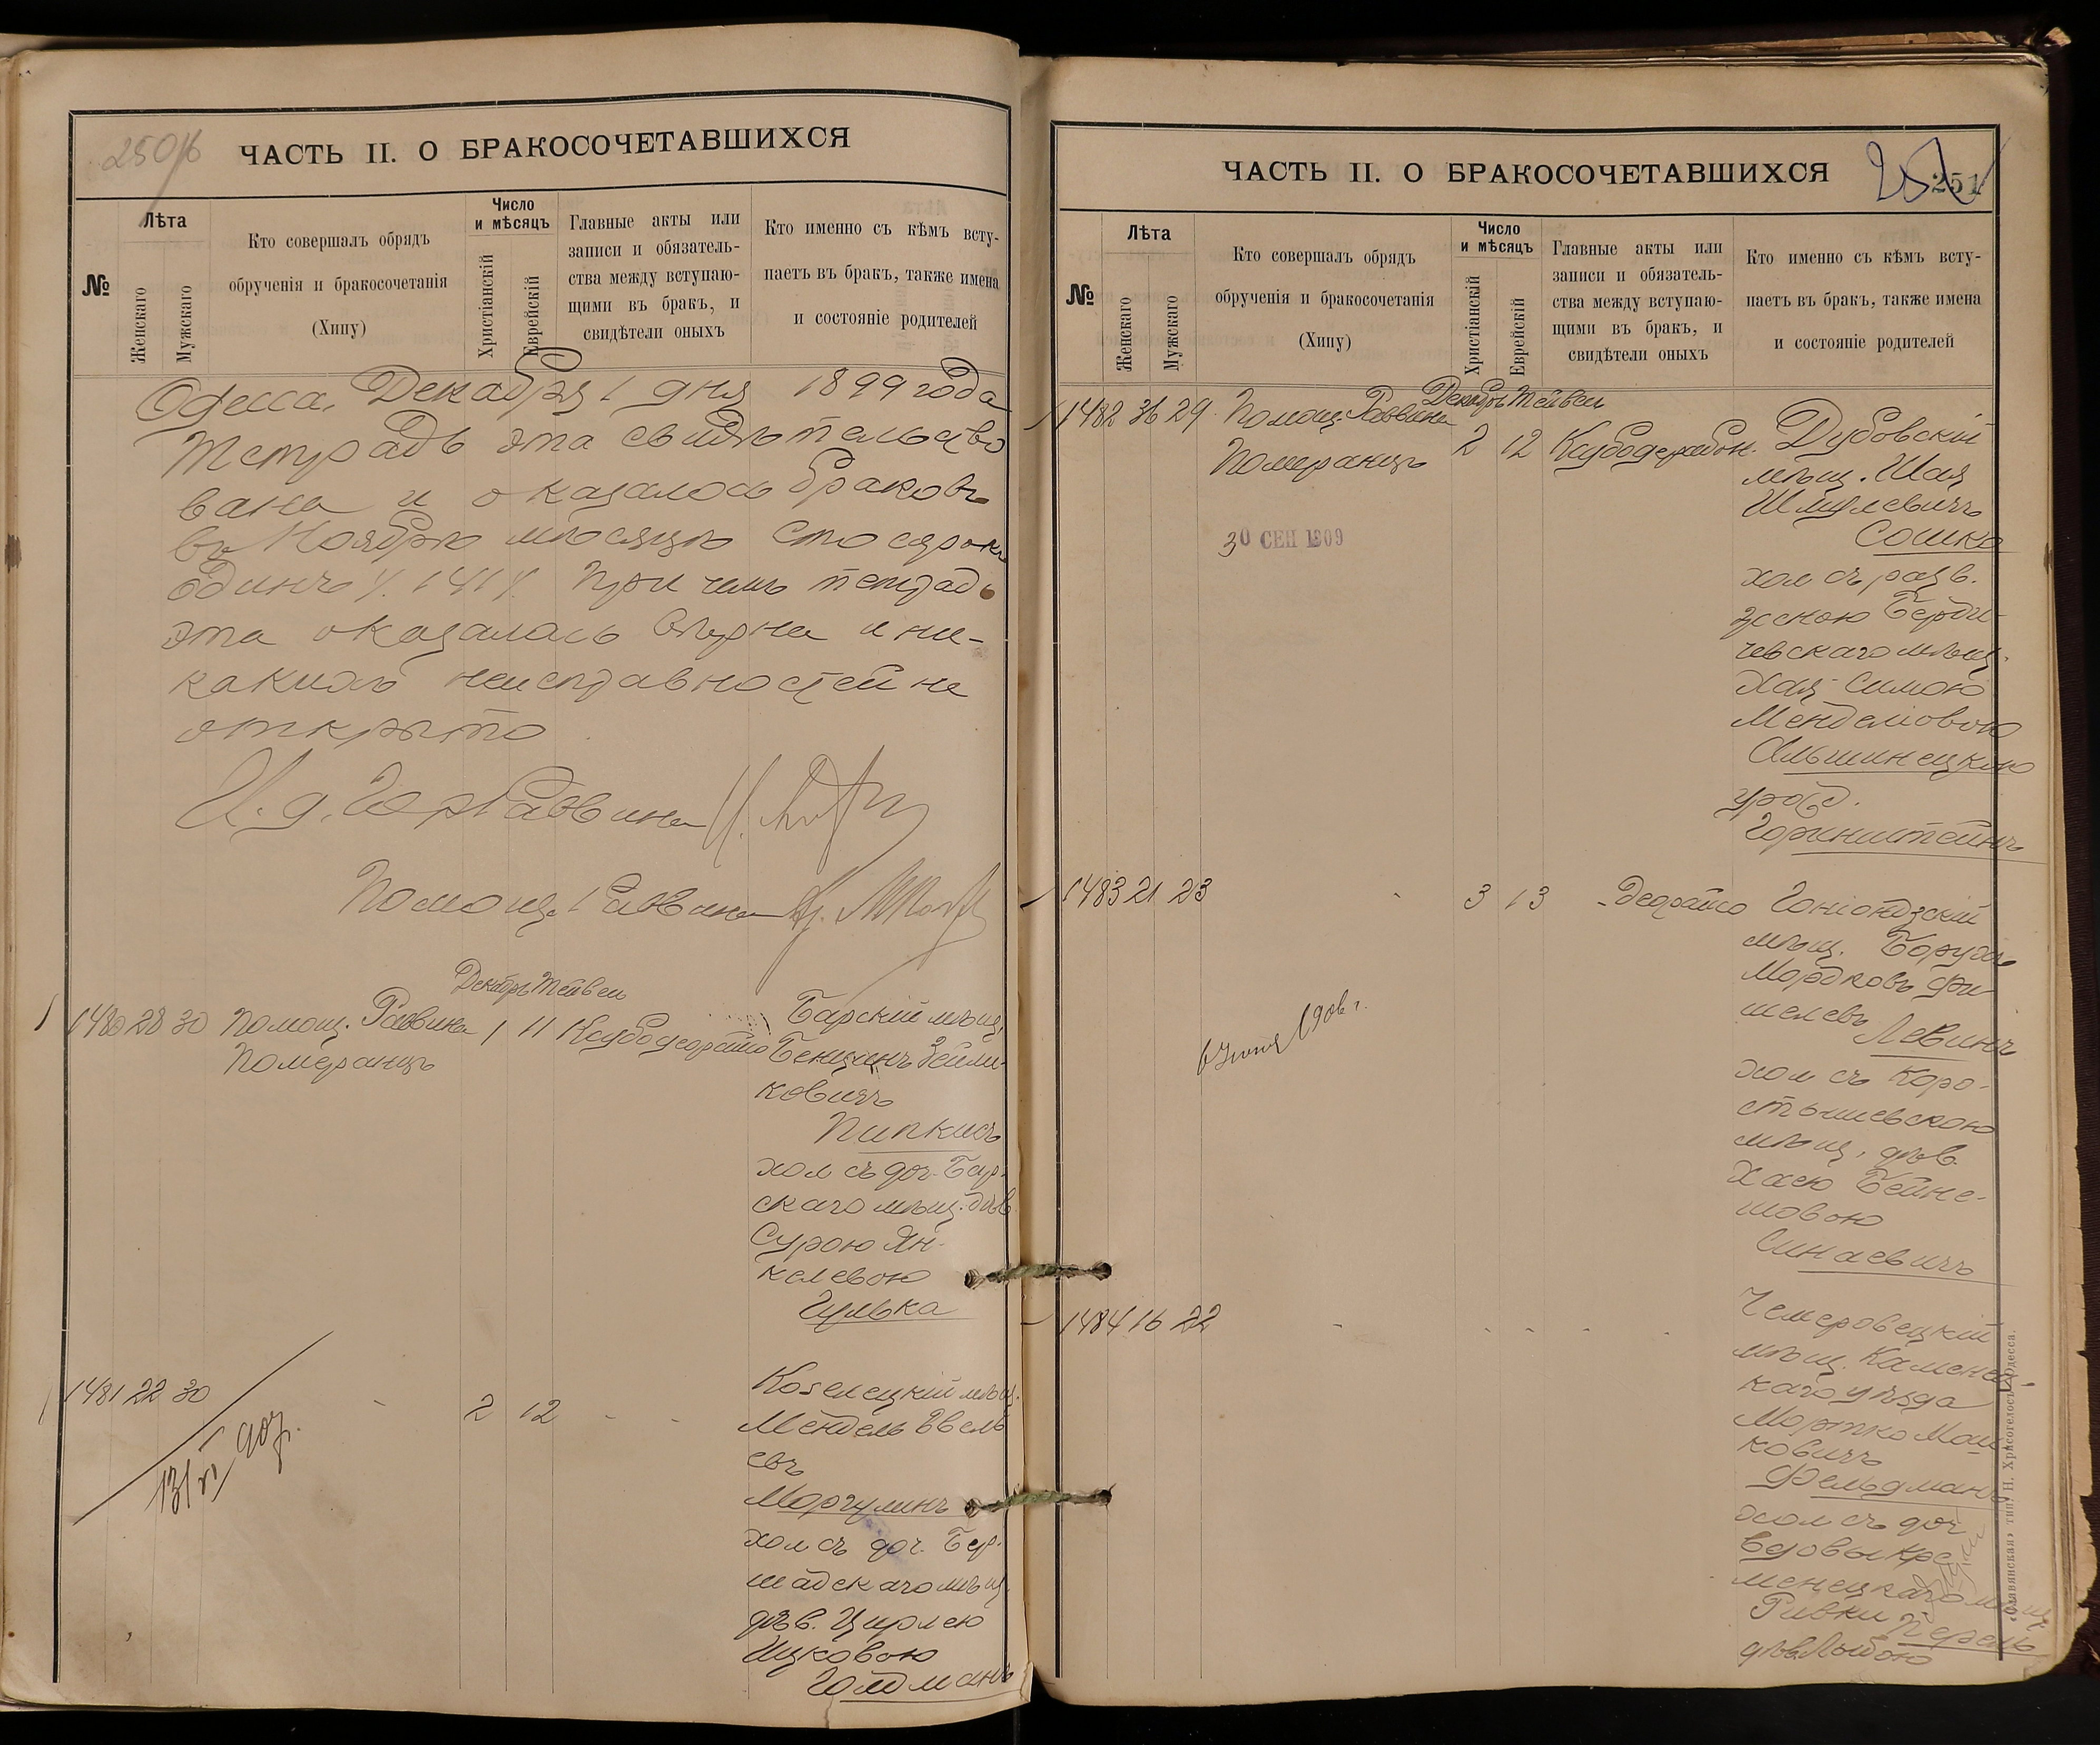 250об
ЧАСТЬ II. О БРАКОСОЧЕТАВШИХСЯ
№
Лѣта
Женскаго
Мужскаго
Кто совершалъ обрядъ
обрученія и бракосочетанія
(Хипу)
Число
и мѣсяцъ
Христіанскій
Еврейскій
Главные акты или
записи и обязатель-
ства между вступаю-
щими въ бракъ, и
свидѣтели оныхъ
Кто именно съ кѣмъ всту-
паетъ въ бракъ, также имена
и состояніе родителей
Одесса, Декабря 1 дня 1899 года
Тетрадь эта свидѣтельство
вана и оказалось браковъ
въ Ноябрѣ мѣсяцѣ сто сорокъ
одинъ /. 141 /. При чемъ тетрадь
эта оказалась вѣрна и ни-
какихъ неисправностей не
открыто
И. д. Гор Раввина
Помощ. Раввина
Декабрь Тейвесъ
1480 28 30 Помощ. Раввина 1 11 Каубодесрайто Барскій мѣщ.
Померанцъ Бенционъ Зейли-
ковичъ
Пипкисъ
хол съ доч. Бар-
скаго мѣщ. дѣв
Сурою Ян-
келевою
Гулька
1481 22 30 2 12 Козелецкій мѣщ.
Мендель Евель
евъ
Моргулинъ
хол съ доч. Бер-
шадскаго мѣщ.
дѣв. Цирлею
Ицковою
Голдманъ
13/VI 907.
ЧАСТЬ II. О БРАКОСОЧЕТАВШИХСЯ
251
№
Лѣта
Женскаго
Мужскаго
Кто совершалъ обрядъ
обрученія и бракосочетанія
(Хипу)
Число
и мѣсяцъ
Христіанскій
Еврейскій
Главные акты или
записи и обязатель-
ства между вступаю-
щими въ бракъ, и
свидѣтели оныхъ
Кто именно съ кѣмъ всту-
паетъ въ бракъ, также имена
и состояніе родителей
Декабрь Тейвесъ
1482 36 29 Помощ. Раввина 2 12 Дубовскій
Померанцъ мѣщ. Шая
Шмулевичъ
Сошка
30 СЕН 1909
хол съ разв.
женою Берди-
чевскаго мѣщ.
Хая-Симою
Менделіовою
Ольшинецкою
урожд.
Горинштейнъ
1483 21 23 3 13 Десрайто Гоніондзскій
мѣщ. Борухъ
Мордковъ Фи-
шелевъ Левинъ
6 Іюня 1906 г.
хол съ Коро-
стышевскою
мѣщ. дѣв.
Хаею Бейне-
шовою
Синаевичъ
1484 16 22 Чемеровецкій
мѣщ. Каменец-
каго уѣзда
Мортко Мош-
ковичъ
Фельдманъ
хол съ доч
вдовы Кре
менецкаго мѣщ
Ривки Перель
дѣв. Лыбою
«Славянская» тип. Н. Хрисогелосъ, Одесса.